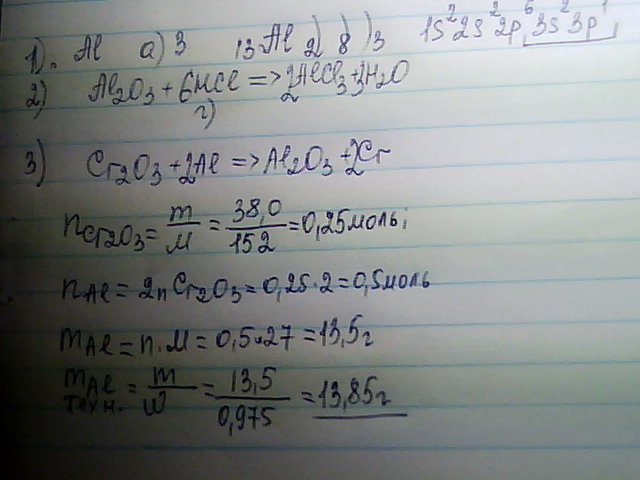 1). Al а) 3 ₁₃Al 2) 8) )3 1s²2s²2p⁶3s²3p¹
2) Al₂O₃ + 6HCl => 2AlCl₃ + 3H₂O
г)
3) Cr₂O₃ + 2Al => Al₂O₃ + 2Cr
nCr₂O₃ = m/M = 38,0/152 = 0,25 моль;
nAl = 2nCr₂O₃ = 0,25·2 = 0,5 моль
mAl = n·M = 0,5·27 = 13,5 г
mAl техн. = m/w = 13,5/0,975 = 13,85 г